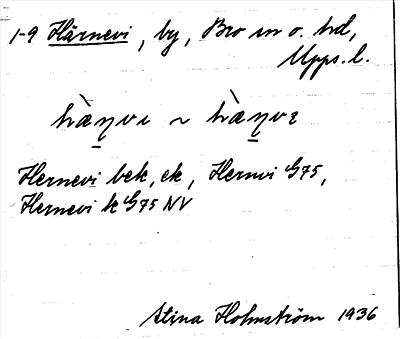 1-9 Härnevi, by, Bro sn o. hd,
Upps. l.
hàṇvı ~ hàṇvɪ
Hernevi bek, ek, Hernvi G75,
Hernevi k G75 NV
Stina Holmström 1936